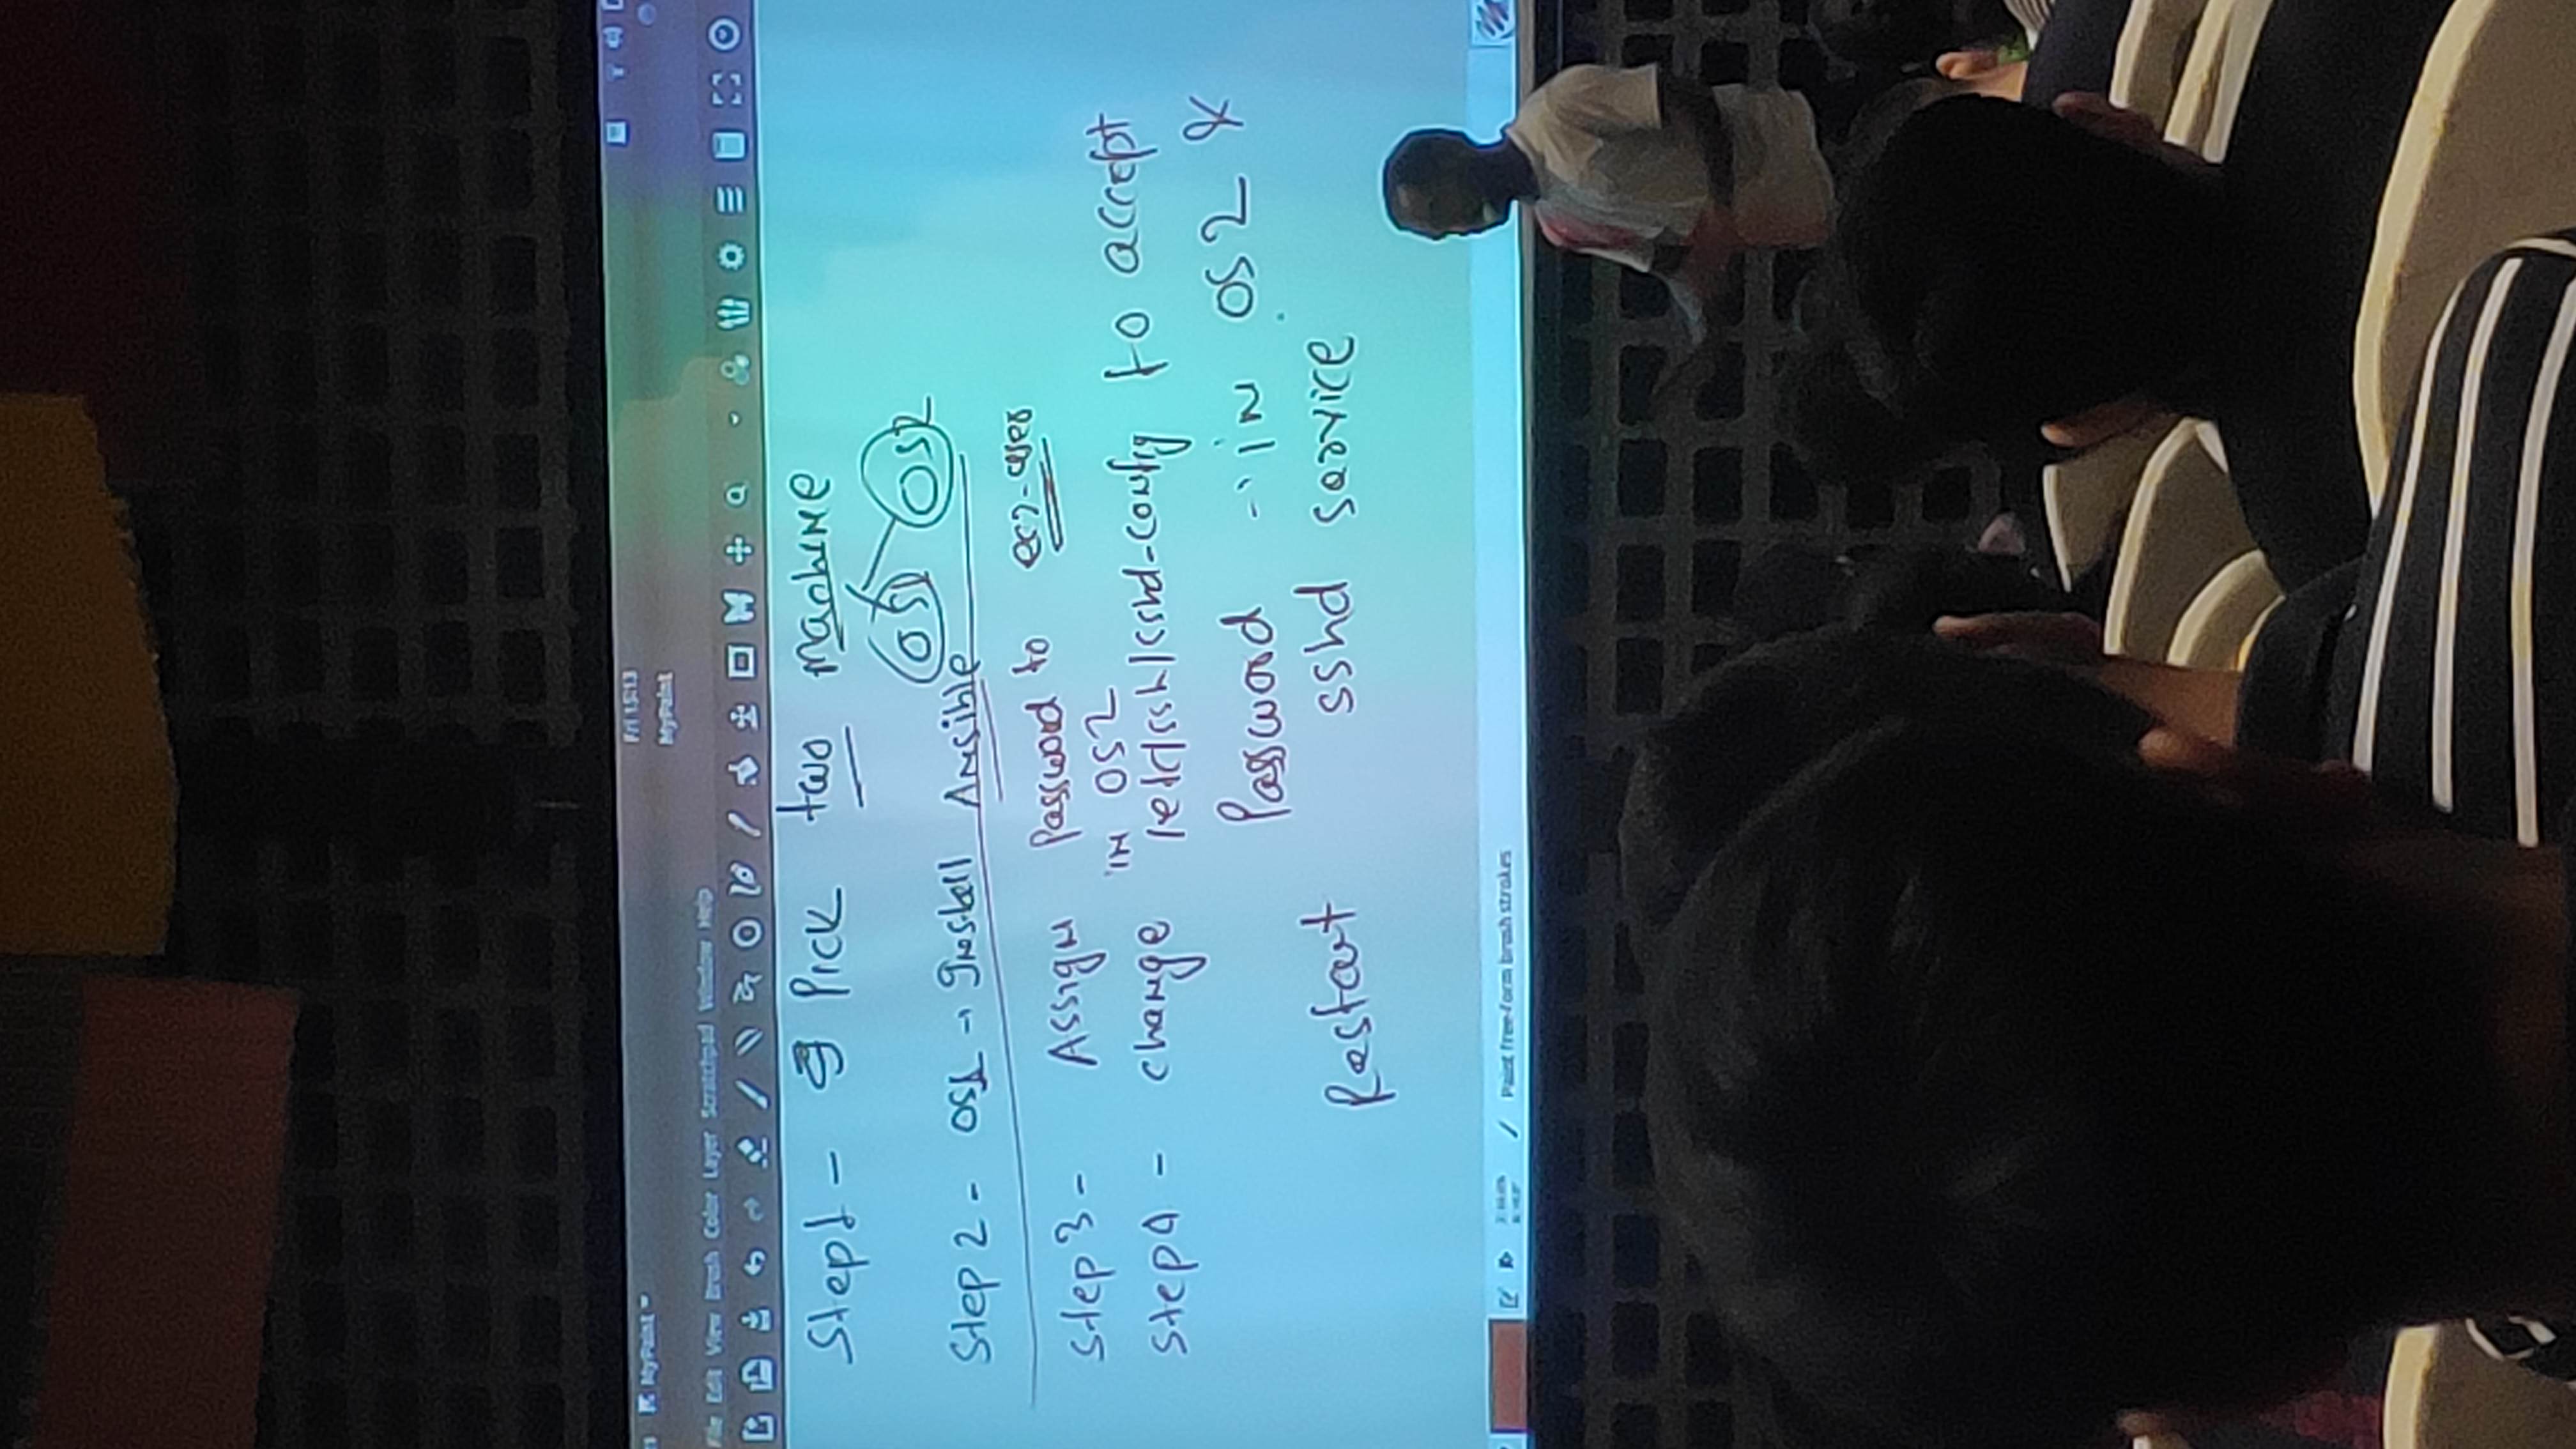 MyPaint
Fri 15:13
MyPaint
File Edit View Brush Color Layer Scratchpad Window Help
Step1 - Pick two machine
OS1 OS2
Step 2 - OS1 → Install Ansible
Step 3 - Assign Password to ec2-user
in OS2
Step 4 - change /etc/ssh/sshd-config to accept
Password → in OS2 &
Restart sshd service
Paint free-form brush strokes